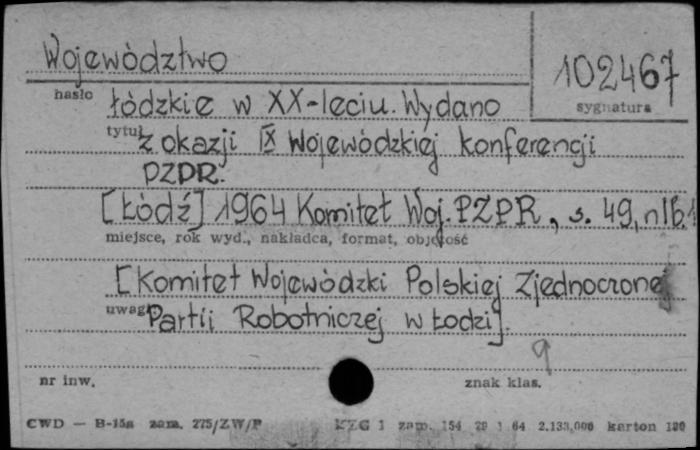 Województwo
102467
hasło łódzkie w XX-leciu. Wydano
sygnatura
tytuł z okazji IX Wojewódzkiej konferencji
PZPR.
[Łódź] 1964 Komitet Woj. PZPR, s. 49, nlb. 1
miejsce, rok wyd., nakładca, format, objętość
[Komitet Wojewódzki Polskiej Zjednoczonej
uwagi Partii Robotniczej w Łodzi].
9
nr inw.
znak klas.
CWD — B-15a zam. 275/ZW/P KZG 1 zam. 154 29 1 64 2.133,000 karton